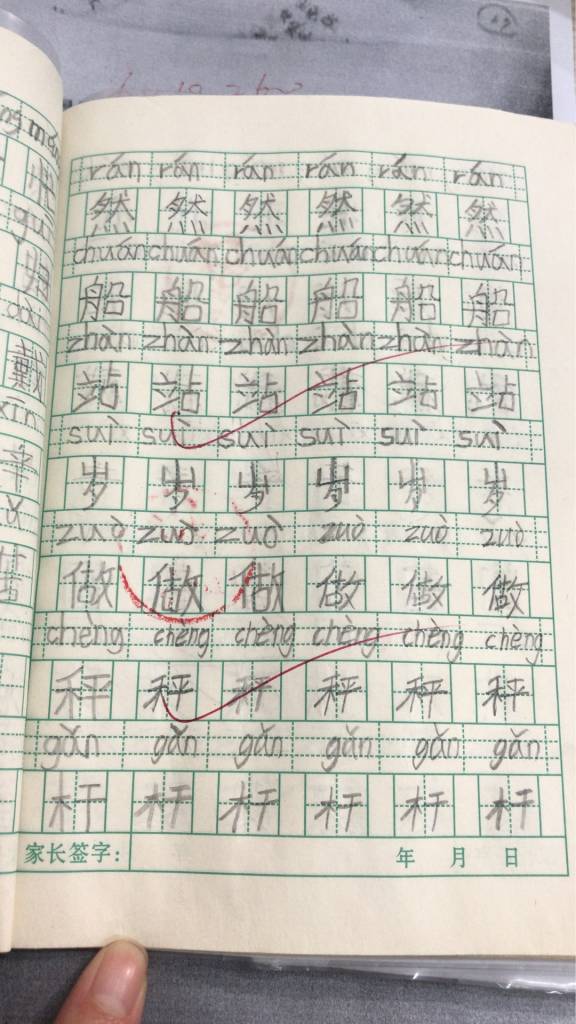 rán rán rán rán rán rán
然 然 然 然 然 然
chuán chuán chuán chuán chuán chuán
船 船 船 船 船 船
zhàn zhàn zhàn zhàn zhàn zhàn
站 站 站 站 站 站
suì suì suì suì suì suì
岁 岁 岁 岁 岁 岁
zuò zuò zuò zuò zuò zuò
做 做 做 做 做 做
chèng chèng chèng chèng chèng chèng
秤 秤 秤 秤 秤 秤
gǎn gǎn gǎn gǎn gǎn gǎn
杆 杆 杆 杆 杆 杆
家长签字: 年 月 日